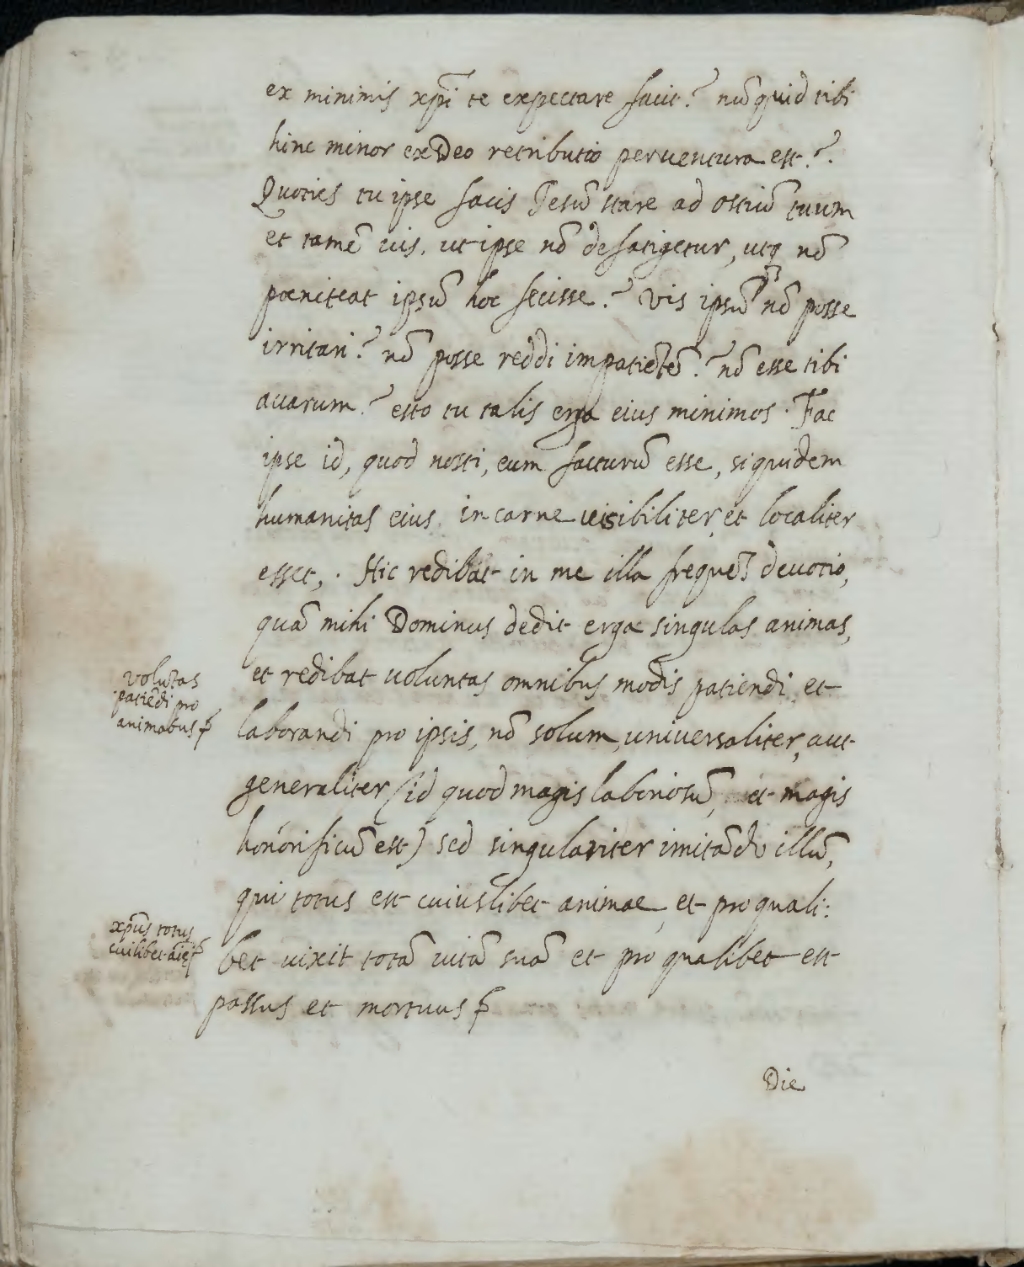 ex minimis xp̃i te expectare facit? nũquid tibi
hinc minor ex Deo retributio peruentura est?.
Quoties tu ipse facis Iesũ stare ad ostiũ tuum
et tamẽ uis, ut ipse nõ defatigetur, utq nõ
pœniteat ipsũ hoc fecisse? Vis ipsũ nõ posse
irritari? nõ posse reddi impatiẽtẽ? nõ esse tibi
auarum? esto tu talis erga eius minimos. Fac
ipse id, quod nosti, eum facturũ esse, siquidem
humanitas eius in carne uisibiliter et localiter
esset,. Hic redibat in me illa frequẽs deuotio,
quã mihi Dominus dedit erga singulas animas,
et redibat uoluntas omnibus modis patiendi et
uolũtas
patiẽdi pro
animabus
laborandi pro ipsis, nõ solum uniuersaliter, aut
generaliter (id quod magis laboriosũ, et magis
honorificũ est) sed singulariter imitãdo illũ,
qui totus est cuiuslibet animae, et pro quali:
xp̃us totus
cuilibet aĩe
bet uixit totã uitã suã et pro qualibet est
passus et mortuus
Die